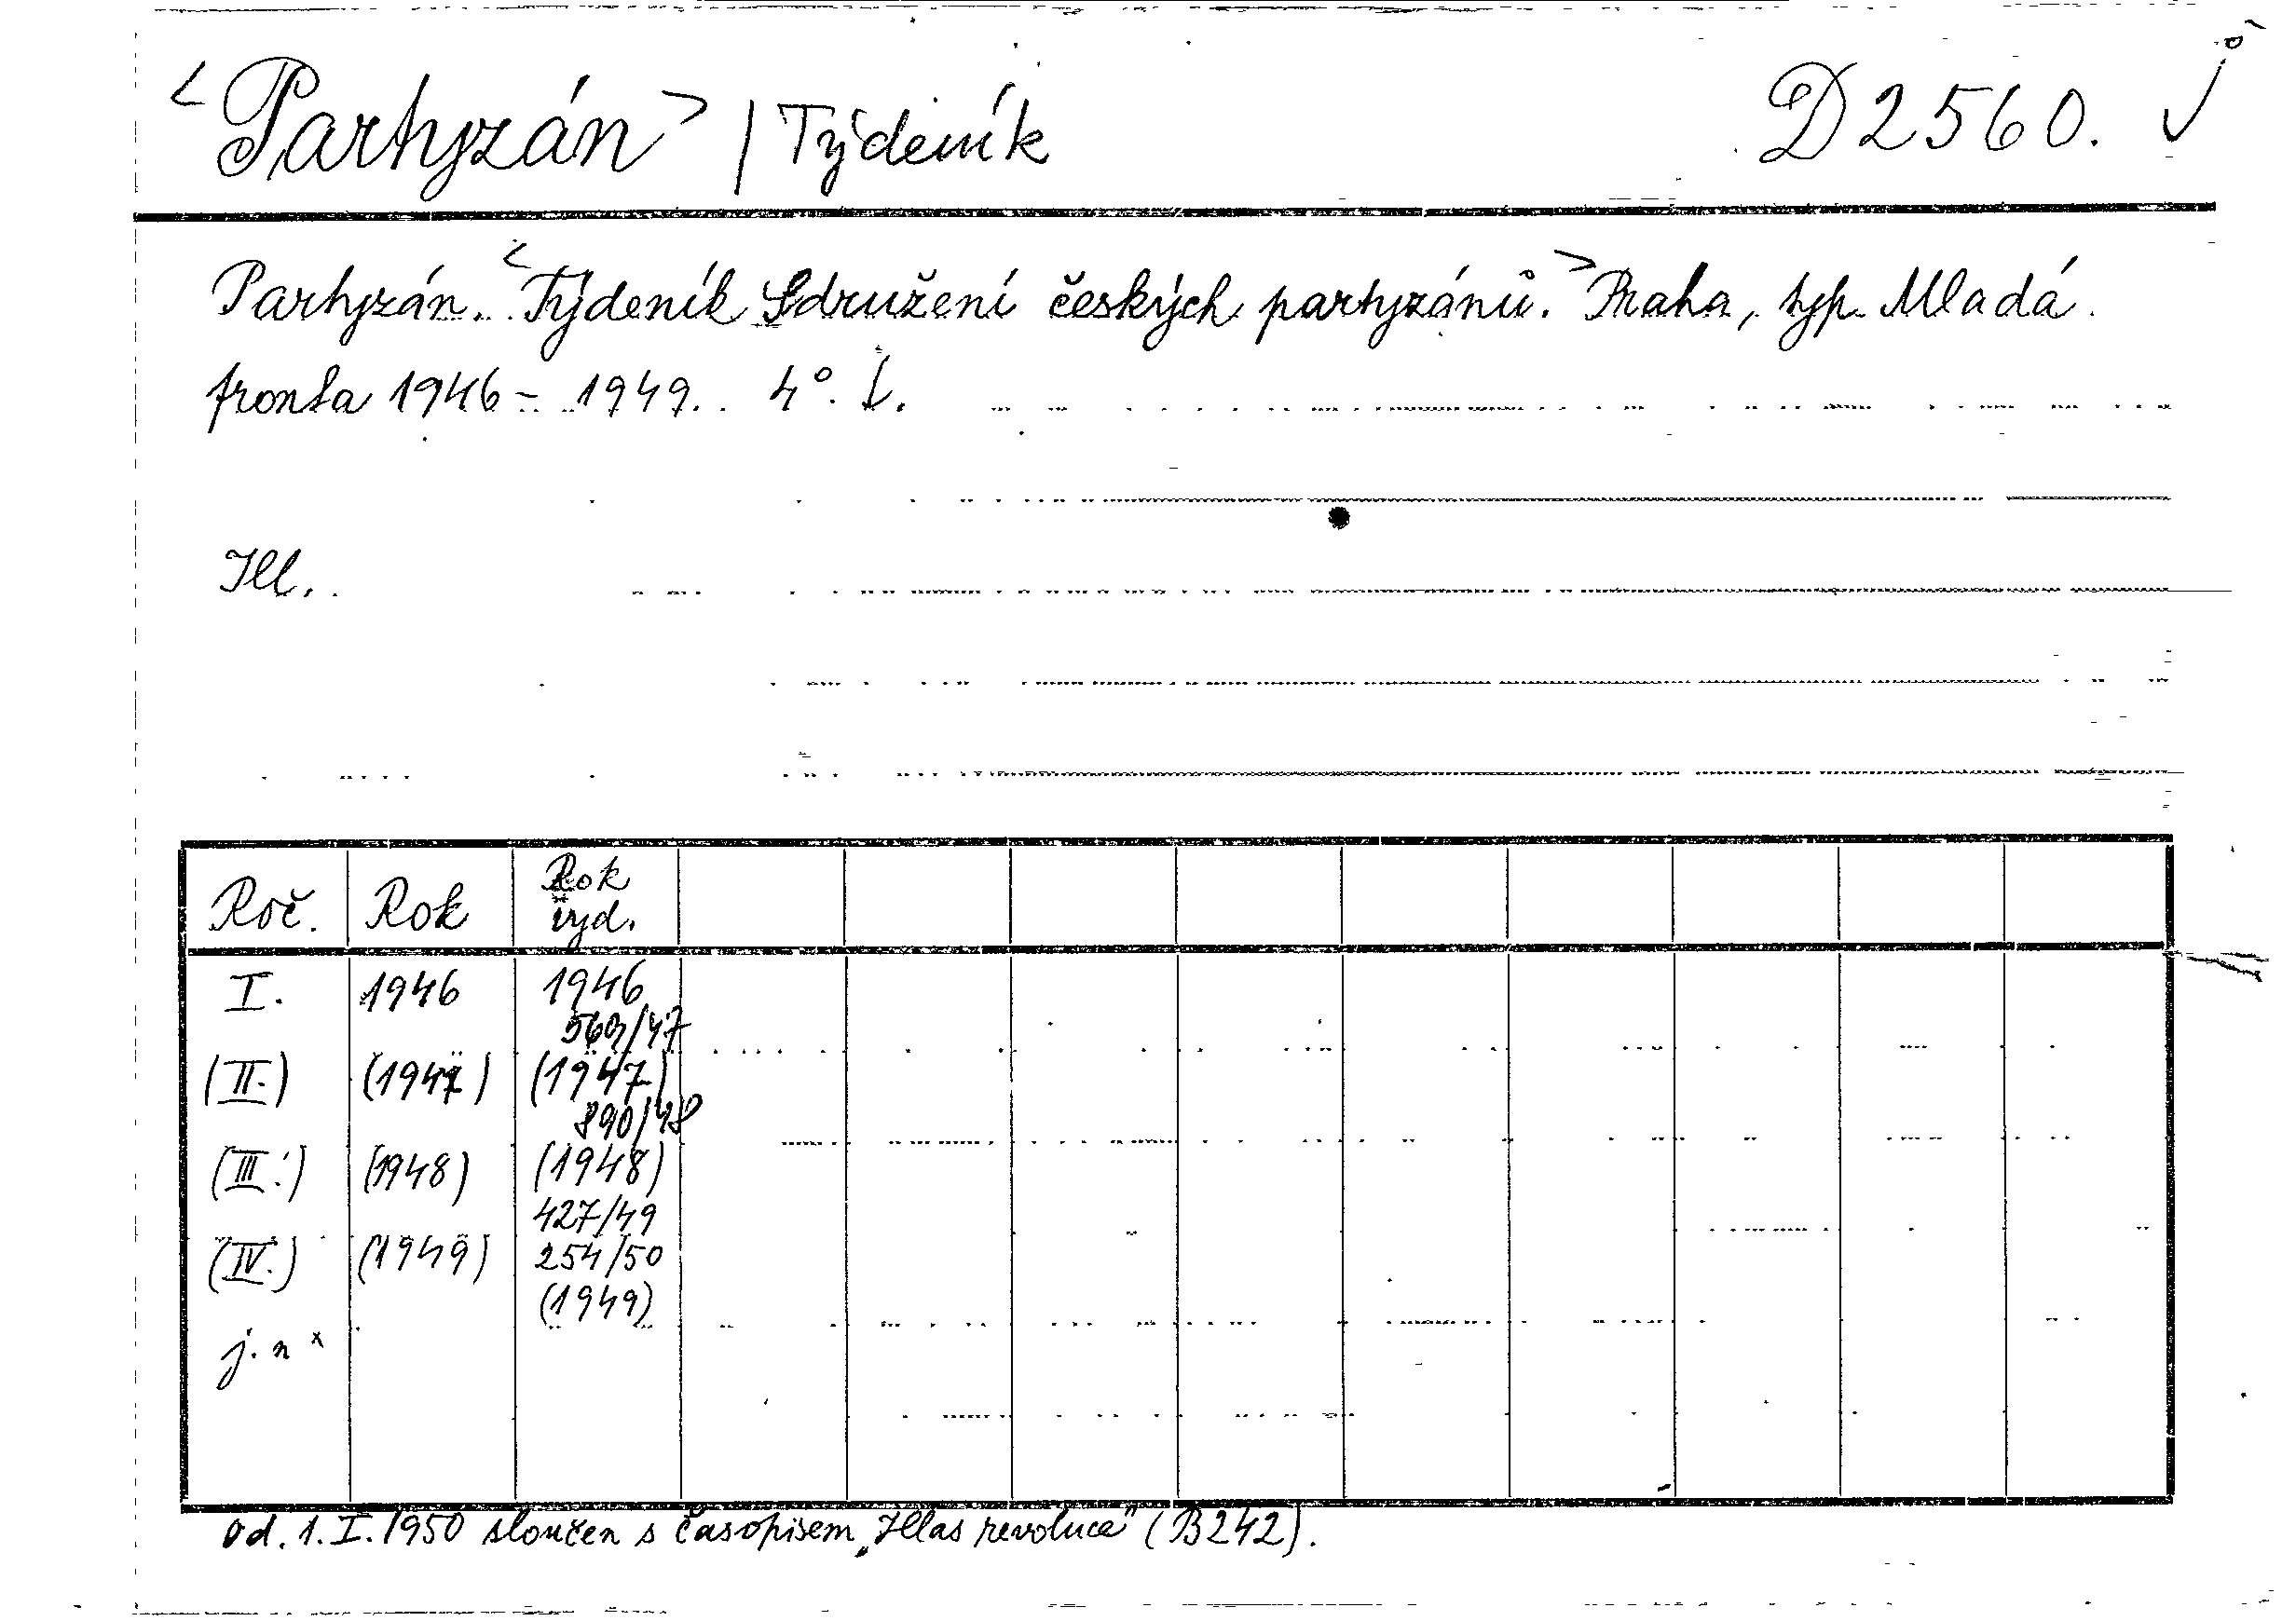 <Partyzán> | Týdeník D 2560.
Partyzán. <Týdeník Sdružení českých partyzánů.> Praha, typ. Mladá
fronta 1946 - 1949. 4°.
Ill.
Roč. Rok Rok vyd.
I. 1946 1946
/47
(II.) (1947) (1947)
890/48
(III.) (1948) (1948)
427/49
(IV.) (1949) 254/50
(1949)
j. n x
Od. 1. I. 1950 sloučen s časopisem „Hlas revoluce" (B 242).